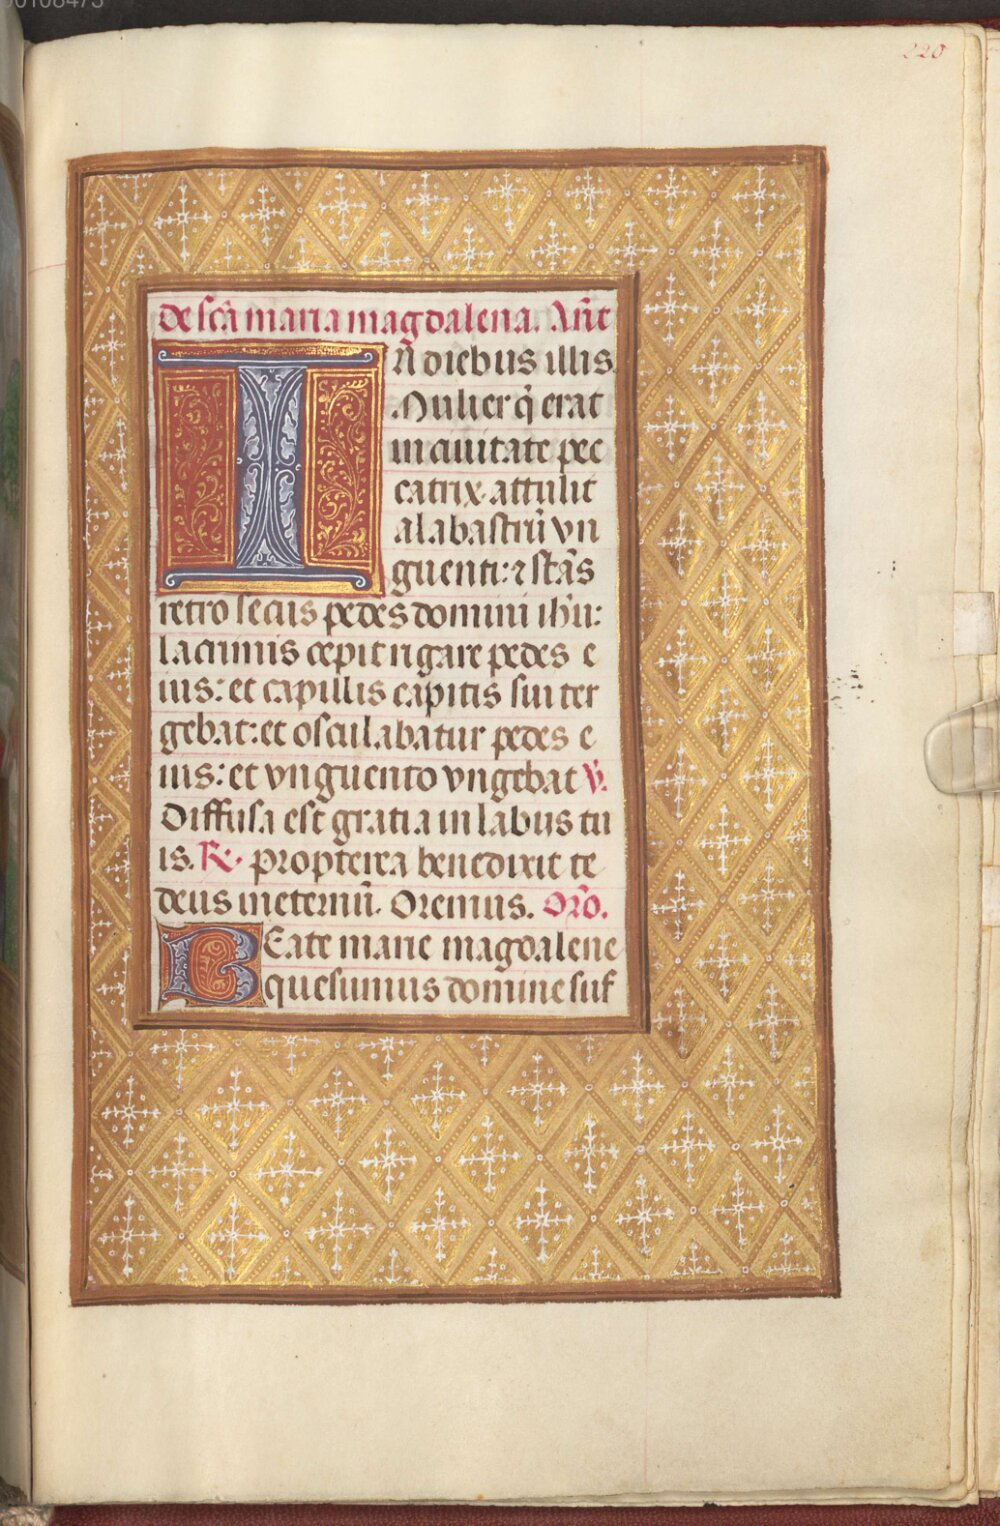 220
de scã maria magdalena. Añt
IÑ diebus illis
Mulier q̃ erat
in ciuitate pec
catrix attulit
alabastrũ vn
guenti: ⁊ stãs
retro secus pedes domini ihũ:
lacrimis cepit rigare pedes e
ius: et capillis capitis sui ter
gebat: et osculabatur pedes e
ius: et vnguento vngebat ℣.
Diffusa est gratia in labus tu
is. ℟. propterea benedixit te
deus ineternũ. Oremus. Orõ.
BEate marie magdalene
quesumus domine suf